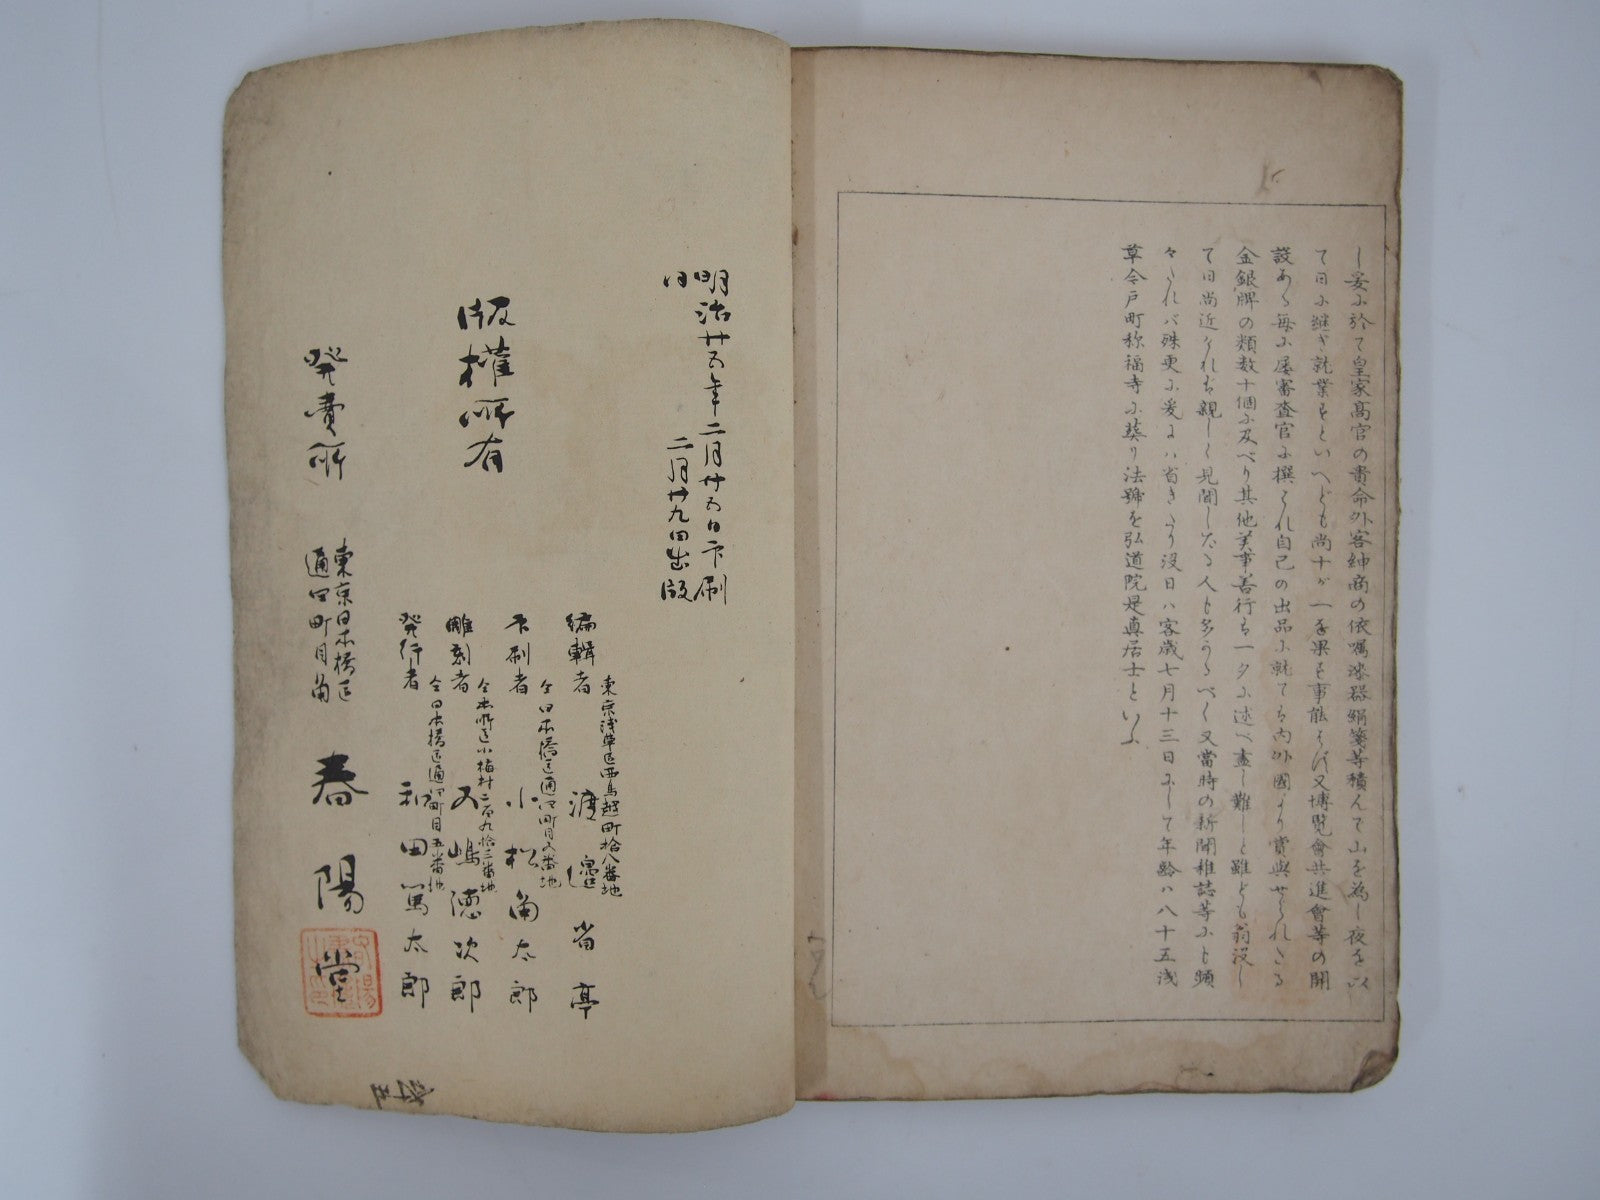 し妥に於て皇家高官の貴命外客紳商の依嘱漆器絹箋等積んで山を為し夜を以
て日に継ぎ就業すといへども尚十が一を果す事能はず又博覧會共進會等の開
設ある毎に屡審査官に撰ばれ自己の出品に就ても内外國より賞與せられたる
金銀牌の類数十個に及べり其他美事善行も一夕に述べ盡し難しと雖ども翁没し
て日尚近ければ親しく見聞したる人も多かるべく又當時の新聞雑誌等にも頻
々たれバ殊更に爰にハ省きたり没日ハ客歳七月十三日にして年齢ハ八十五浅
草今戸町称福寺に葬り法號を弘道院是真居士といふ
明治廿五年二月廿五日印刷
同 二月廿九日出版
版權所有
東京浅草区西鳥越町拾八番地
編輯者 渡邉省亭
仝日本橋区通四町目五番地
印刷者 小松角太郎
仝本所区小梅村二百九拾二番地
雕刻者 五嶋徳次郎
仝日本橋区通四町目五番地
発行者 和田篤太郎
発賣所 東京日本橋区
通四町目角
春陽堂